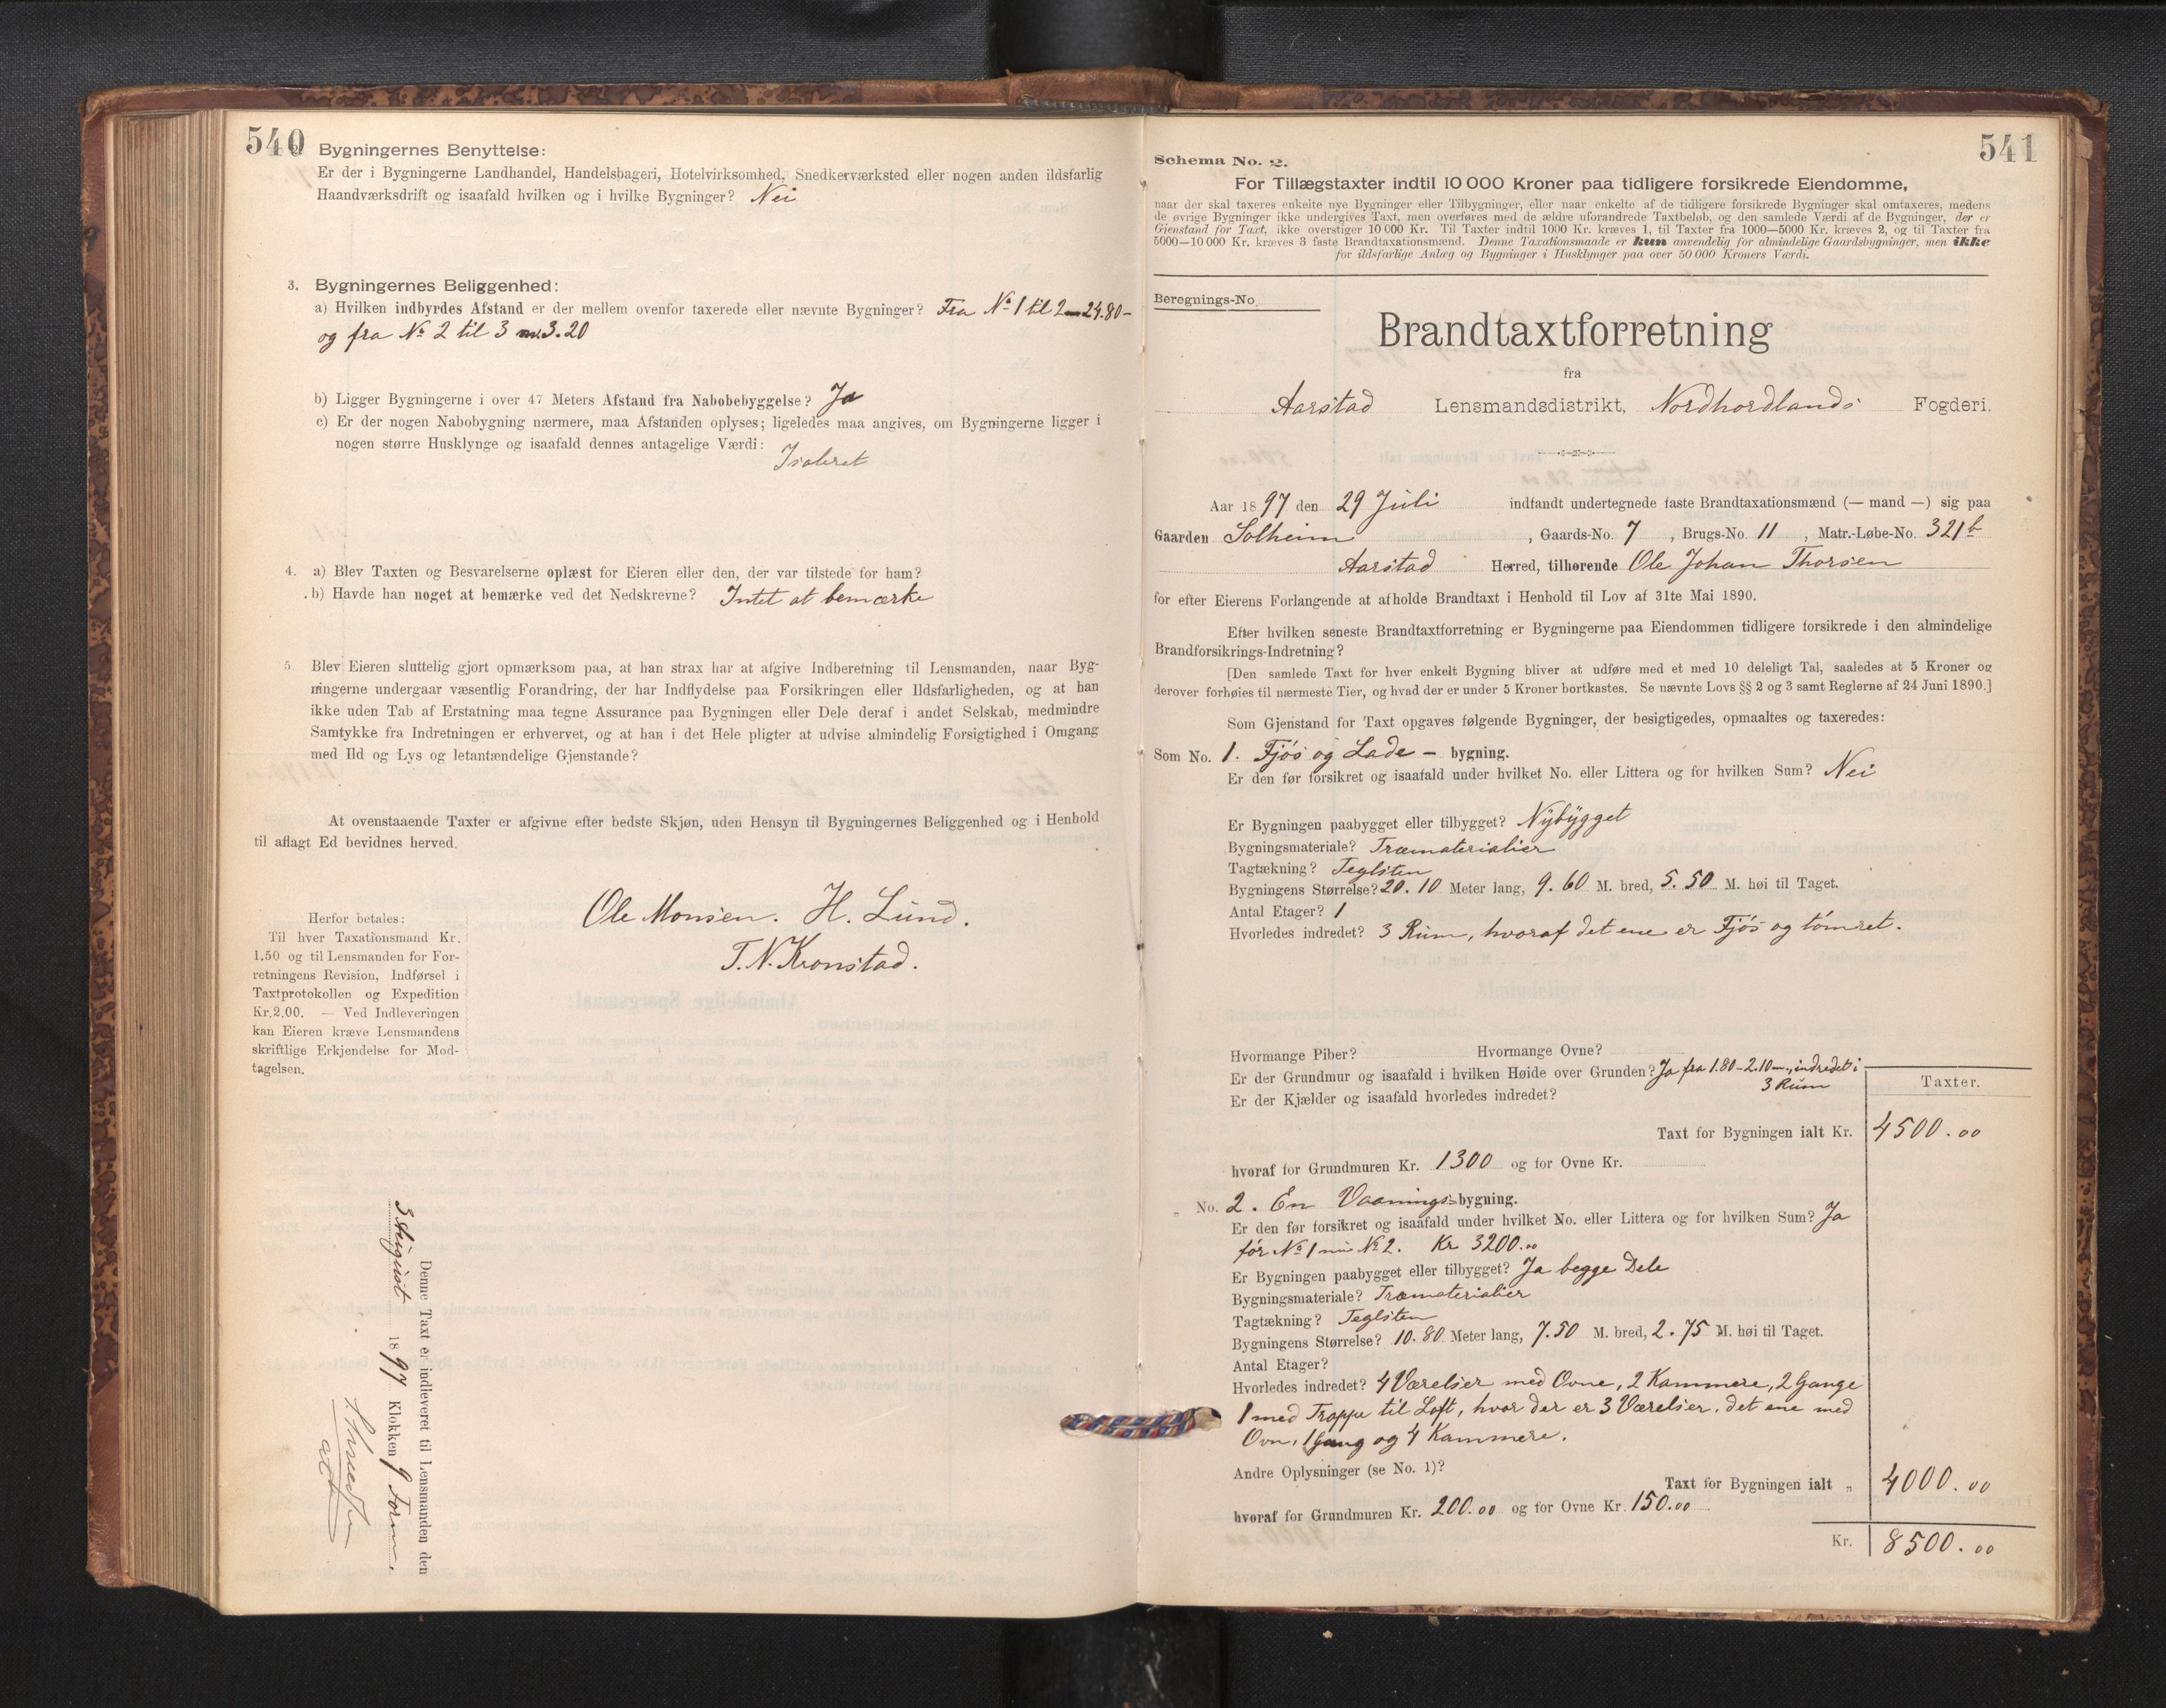 540
Bygningernes Benyttelse:
Er der i Bygningerne Landhandel, Handelsbageri, Hotelvirksomhed, Snedkerværksted eller nogen anden ildsfarlig
Haandværksdrift og isaafald hvilken og i hvilke Bygninger? Nei
3. Bygningernes Beliggenhed:
a) Hvilken indbyrdes Afstand er der mellem ovenfor taxerede eller nævnte Bygninger? Fra No 1 til 2 m 24.80 -
og fra No 2 til 3 m. 3.20
b) Ligger Bygningerne i over 47 Meters Afstand fra Nabobebyggelse? Ja
c) Er der nogen Nabobygning nærmere, maa Afstanden oplyses; ligeledes maa angives, om Bygningerne ligger i
nogen større Husklynge og isaafald dennes antagelige Værdi:
Isoleret
4. a) Blev Taxten og Besvarelserne oplæst for Eieren eller den, der var tilstede for ham?
b) Havde han noget at bemærke ved det Nedskrevne? Intet at bemærke
5. Blev Eieren sluttelig gjort opmærksom paa, at han strax har at afgive Indberetning til Lensmanden, naar Byg-
ningerne undergaar væsentlig Forandring, der har Indflydelse paa Forsikringen eller Ildsfarligheden, og at han
ikke uden Tab af Erstatning maa tegne Assurance paa Bygningen eller Dele deraf i andet Selskab, medmindre
Samtykke fra Indretningen er erhvervet, og at han i det Hele pligter at udvise almindelig Forsigtighed i Omgang
med Ild og Lys og letantændelige Gjenstande?
At ovenstaaende Taxter er afgivne efter bedste Skjøn, uden Hensyn til Bygningernes Beliggenhed og i Henhold
til aflagt Ed bevidnes herved.
Ole Monsen. H. Lund.
T. N. Kronstad.
Herfor betales:
Til hver Taxationsmand Kr.
1.50 og til Lensmanden for For-
retningens Revision, Indførsel i
Taxtprotokollen og Expedition
Kr. 2.00. — Ved Indleveringen
kan Eieren kræve Lensmandens
skriftlige Erkjendelse for Mod-
tagelsen.
Denne Taxt er indleveret til Lensmanden den
3 August 1897 Klokken 9 Form.
541
Schema No. 2.
For Tillægstaxter indtil 10 000 Kroner paa tidligere forsikrede Eiendomme,
naar der skal taxeres enkelte nye Bygninger eller Tilbygninger, eller naar enkelte af de tidligere forsikrede Bygninger skal omtaxeres, medens
de øvrige Bygninger ikke undergives Taxt, men overføres med de ældre uforandrede Taxtbeløb, og den samlede Værdi af de Bygninger, der er
Gienstand for Taxt, ikke overstiger 10 000 Kr. Til Taxter indtil 1000 Kr. kræves 1, til Taxter fra 1000—5000 Kr. kræves 2, og til Taxter fra
5000—10 000 Kr. kræves 3 faste Brandtaxationsmænd. Denne Taxationsmaade er kun anvendelig for almindelige Gaardsbygninger, men ikke
for ildsfarlige Anlæg og Bygninger i Husklynger paa over 50 000 Kroners Værdi.
Beregnings-No
Brandtaxtforretning
fra
Aarstad Lensmandsdistrikt, Nordhordlands Fogderi.
Aar 1897 den 29 Juli indfandt undertegnede faste Brandtaxationsmænd (— mand —) sig paa
Gaarden Solheim, Gaards-No. 7, Brugs-No. 11, Matr.-Løbe-No. 321b
Aarstad Herred, tilhørende Ole Johan Thorsen
for efter Eierens Forlangende at afholde Brandtaxt i Henhold til Lov af 31te Mai 1890.
Efter hvilken seneste Brandtaxtforretning er Bygningerne paa Eiendommen tidligere forsikrede i den almindelige
Brandforsikrings-Indretning?
[Den samlede Taxt for hver enkelt Bygning bliver at udføre med et med 10 deleligt Tal, saaledes at 5 Kroner og
derover forhøies til nærmeste Tier, og hvad der er under 5 Kroner bortkastes. Se nævnte Lovs §§ 2 og 3 samt Reglerne af 24 Juni 1890.]
Som Gjenstand for Taxt opgaves følgende Bygninger, der besigtigedes, opmaaltes og taxeredes:
Som No. 1. Fjøs og Lade - bygning.
Er den før forsikret og isaafald under hvilket No. eller Littera og for hvilken Sum? Nei
Er Bygningen paabygget eller tilbygget? Nybygget
Bygningsmateriale? Træmaterialier
Tagtækning? Teglsten
Bygningens Størrelse? 20.10 Meter lang, 9.60 M. bred, 5.50 M. høi til Taget.
Antal Etager? 1
Hvorledes indredet? 3 Rum, hvoraf det ene er Fjøs og tømret.
Hvormange Piber? Hvormange Ovne?
Er der Grundmur og isaafald i hvilken Høide over Grunden? Ja fra 1.80 - 2.10 m., indredet i
3 Rum
Er der Kjælder og isaafald hvorledes indredet?
Taxter.
Taxt for Bygningen ialt Kr. 4500.00
hvoraf for Grundmuren Kr. 1300 og for Ovne Kr.
„ No. 2. En Vaanings-bygning.
Er den før forsikret og isaafald under hvilket No. eller Littera og for hvilken Sum? Ja
før No 1 nu No 2. Kr 3200.00
Er Bygningen paabygget eller tilbygget? Ja begge Dele
Bygningsmateriale? Træmaterialier
Tagtækning? Teglsten
Bygningens Størrelse? 10.80 Meter lang, 7.50 M. bred, 2.75 M. høi til Taget.
Antal Etager?
Hvorledes indredet? 4 Værelser med Ovne, 2 Kammere, 2 Gange
1 med Trappe til Loft, hvor der er 3 Værelser, det ene med
Ovn, 1 Gang og 4 Kammere.
Andre Oplysninger (se No. 1)?
Taxt for Bygningen ialt „ 4000.00
hvoraf for Grundmuren Kr. 200.00 og for Ovne Kr. 150.00
Kr. 8500.00